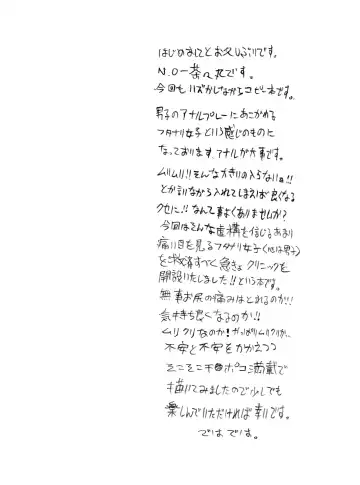 はじめましてとお久しぶりです。
N.O-茶々丸です。
今回もはずかしながらコピー本です。
男子のアナルプレーにあこがれる
フタナリ女子という感じのものに
なっております。アナルが大事です。
ムリムリ!!そんな大きいの入らない!!
とか言いながら入れてしまえば良くなる
クセに!!なんて事よくありませんか?
今回はそんな虚構を信じるあまり
痛い目を見るフタナリ女子(心は男子)
を救済すべく急きょクリニックを
開設いたしました!!という本です。
無事お尻の痛みはとれるのか!!
気持ち良くなるのか!!
ムリクリなのか!
不安と不安をかかえつつ
そこそこチ ポコミ満載で
描いてみましたので少しでも
楽しんでいただければ幸いです。
ではでは。